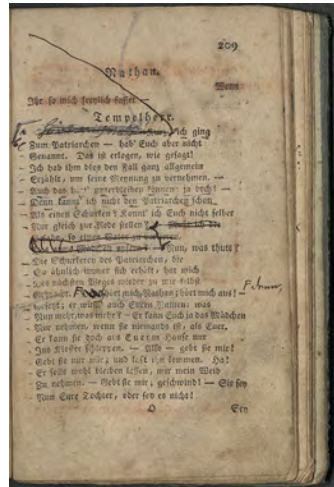 209
Nathan.
Wenn
Ihr so mich freylich fasset —
Tempelherr.
ich ging
Zum Patriarchen — hab' Euch aber nicht
Genannt. Das ist erlogen, wie gesagt!
Ich hab ihm blos den Fall ganz allgemein
Erzählt, um seine Meynung zu vernehmen. —
Auch das unterbleiben können: ja doch! —
Denn kannt' ich nicht den Patriarchen schon
Als einen Schurken? Konnt' ich Euch nicht selber
Nur gleich zur Rede stellen? — Mußt ich der
Gefahr, so einen Vater zu
Mädchen opfern? — Nun, was thuts?
Die Schurkerey des Patriarchen, die
So ähnlich immer sich erhält, hat mich
Des nächsten Weges wieder zu mir selbst
Gebracht. hört mich, Nathan; hört mich aus! —
Gesetzt; er wüßt' auch Euern Namen: was
Nun mehr, was mehr? — Er kann Euch ja das Mädchen
Nur nehmen, wenn sie niemands ist, als Euer.
Er kann sie doch aus Euerm Hause nur
Ins Kloster schleppen. — Also — gebt sie mir!
Gebt sie nur mir; und laßt ihn kommen. Ha!
Er solls wohl bleiben lassen, mir mein Weib
Zu nehmen. — Gebt sie mir; geschwind! — Sie sey
Nun Eure Tochter, oder sey es nicht!
O Sey